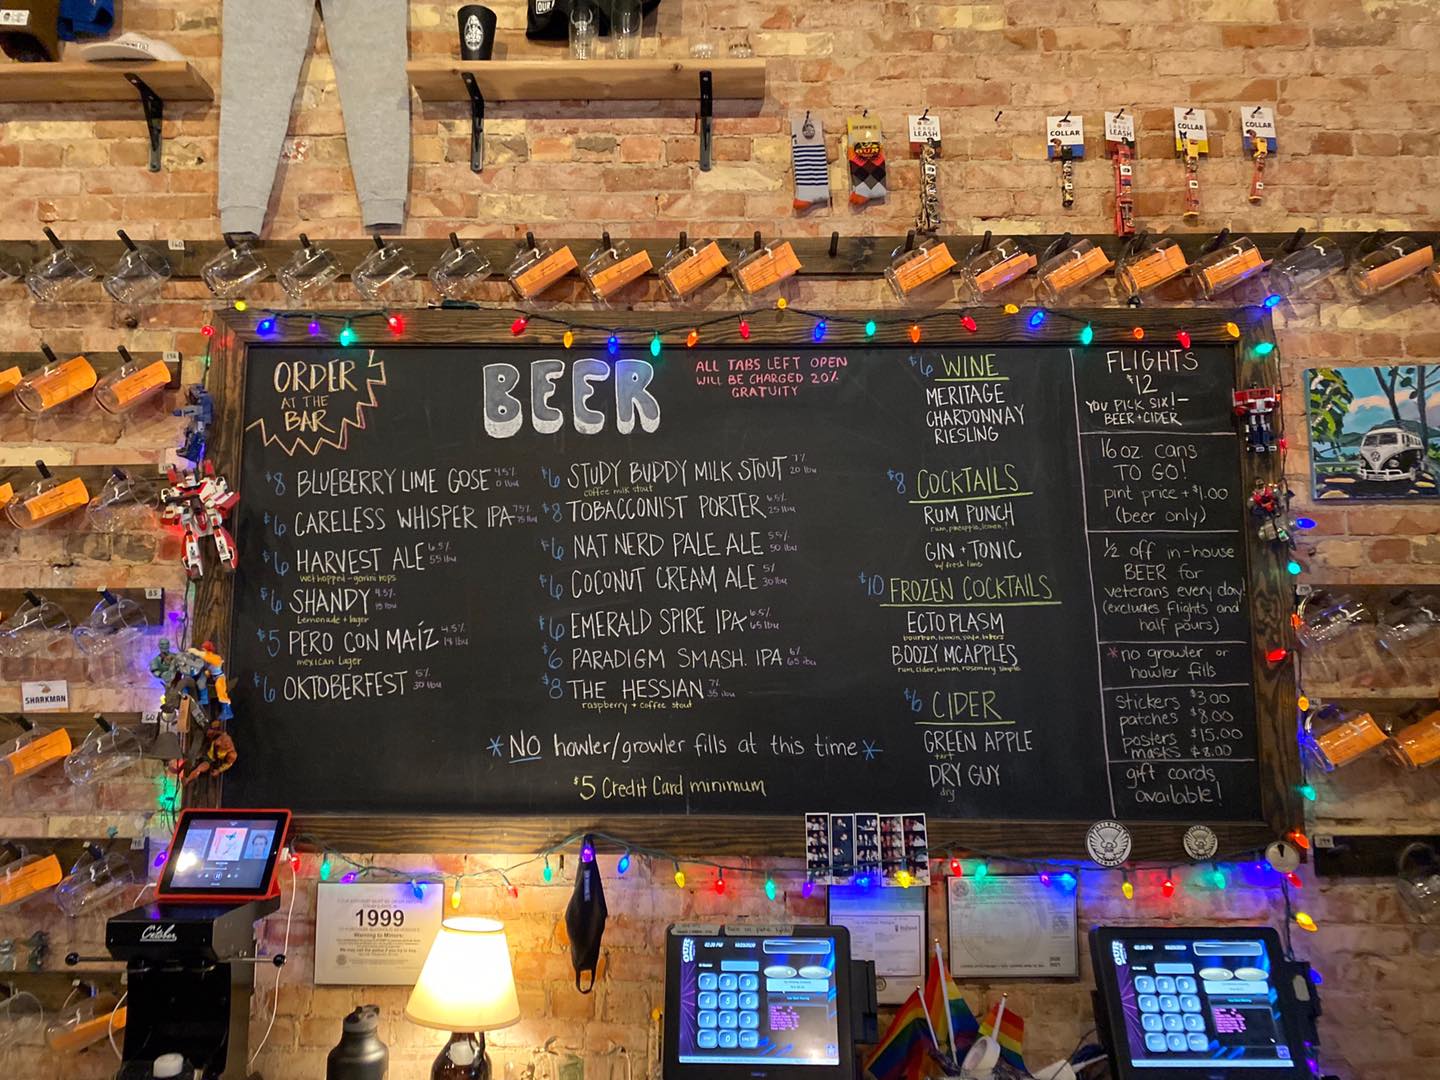 COLLAR
LARGE
LEASH
COLLAR
COLLAR
LARGE
LEASH
160
ORDER
AT THE
BAR
BEER
ALL TABS LEFT OPEN
WILL BE CHARGED 20%
GRATUITY
$8 BLUEBERRY LIME GOSE 4.5% 0 ibu
$6 CARELESS WHISPER IPA 7.5% 75 ibu
$6 HARVEST ALE 6.5% 55 ibu
$6 SHANDY 4.5% 18 ibu
Lemonade + lager
$5 PERO CON MAÍZ 4.5% 18 ibu
mexican lager
$6 OKTOBERFEST 5% 30 ibu
$6 STUDY BUDDY MILK STOUT 7% 20 ibu
coffee milk stout
$8 TOBACCONIST PORTER 6.5% 25 ibu
$6 NAT NERD PALE ALE 5.5% 50 ibu
$6 COCONUT CREAM ALE 5% 30 ibu
$6 EMERALD SPIRE IPA 6.5% 65 ibu
$6 PARADIGM SMASH. IPA 6% 65 ibu
$8 THE HESSIAN 7% 35 ibu
raspberry + coffee stout
*NO howler/growler fills at this time*
$5 Credit Card minimum
$6 WINE
MERITAGE
CHARDONNAY
RIESLING
$8 COCKTAILS
RUM PUNCH
GIN + TONIC
w/ fresh lime
$10 FROZEN COCKTAILS
ECTOPLASM
BOOZY MCAPPLES
rum, cider, lemon, rosemary simple
$6 CIDER
GREEN APPLE
tart
DRY GUY
dry
FLIGHTS
$12
YOU PICK SIX!-
BEER + CIDER
16oz cans
TO GO!
pint price + $1.00
(beer only)
1/2 off in-house
BEER for
veterans every day!
(excludes flights and
half pours)
*no growler or
howler fills
stickers $3.00
patches $8.00
posters $15.00
masks $8.00
gift cards
available!
SHARKMAN
1999
Warning to Minors:
October
OUR
OUR